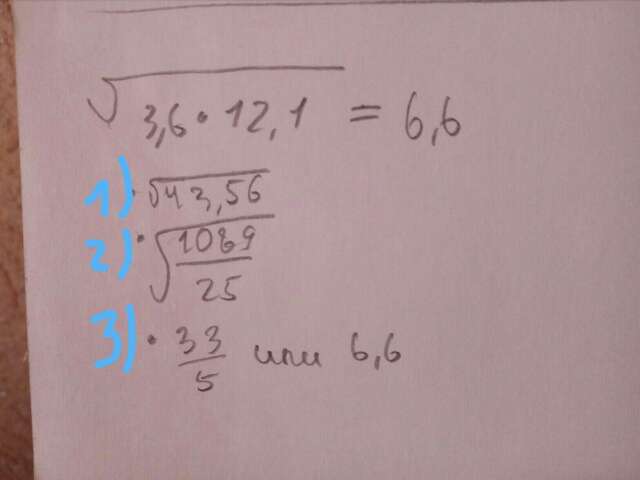 √3,6·12,1 = 6,6
1) · √43,56
2) · √1089/25
3) · 33/5 или 6,6